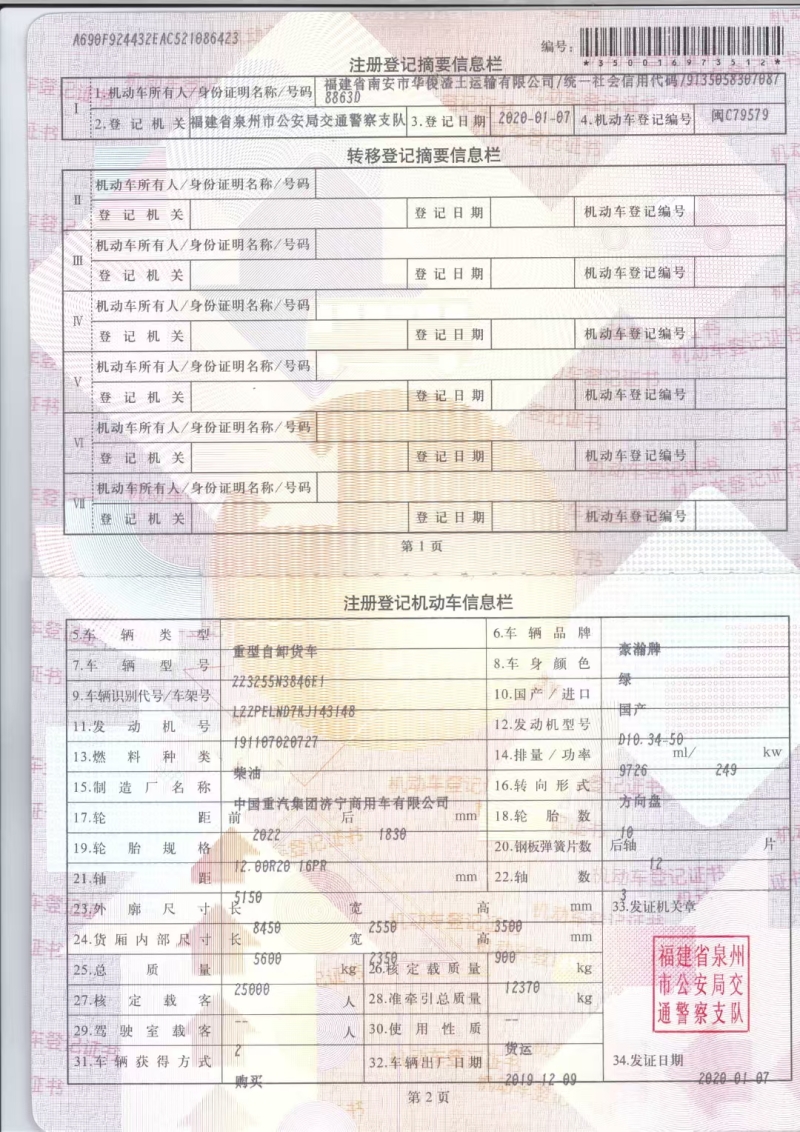 A690F924432EAC521086423
编号:
*350016973512*
注册登记摘要信息栏
I
1.机动车所有人/身份证明名称/号码 福建省南安市华俊渣土运输有限公司/统一社会信用代码/913505830708
78863D
2.登记机关 福建省泉州市公安局交通警察支队 3.登记日期 2020-01-07 4.机动车登记编号 闽C79579
转移登记摘要信息栏
II 机动车所有人/身份证明名称/号码
登记机关 登记日期 机动车登记编号
III 机动车所有人/身份证明名称/号码
登记机关 登记日期 机动车登记编号
IV 机动车所有人/身份证明名称/号码
登记机关 登记日期 机动车登记编号
V 机动车所有人/身份证明名称/号码
登记机关 登记日期 机动车登记编号
VI 机动车所有人/身份证明名称/号码
登记机关 登记日期 机动车登记编号
VII 机动车所有人/身份证明名称/号码
登记机关 登记日期 机动车登记编号
第1页
注册登记机动车信息栏
5.车辆类型 重型自卸货车 6.车辆品牌 豪瀚牌
7.车辆型号 ZZ3255N3846E1 8.车身颜色 绿
9.车辆识别代号/车架号 LZZPELND7KJ143148 10.国产/进口 国产
11.发动机号 191107020727 12.发动机型号 D10.34-50
13.燃料种类 柴油 14.排量/功率 9726 ml/ 249 kw
15.制造厂名称 中国重汽集团济宁商用车有限公司 16.转向形式 方向盘
17.轮距 前 2022 后 1830 mm 18.轮胎数 10
19.轮胎规格 12.00R20 16PR 20.钢板弹簧片数 后轴 12 片
21.轴距 5150 mm 22.轴数 3
23.外廓尺寸 长 8450 宽 2550 高 3500 mm 33.发证机关章
24.货厢内部尺寸 长 5600 宽 2350 高 900 mm
25.总质量 25000 kg 26.核定载质量 12370 kg
27.核定载客 -- 人 28.准牵引总质量 -- kg
29.驾驶室载客 2 人 30.使用性质 货运
31.车辆获得方式 购买 32.车辆出厂日期 2019-12-09
福建省泉州
市公安局交
通警察支队
34.发证日期 2020-01-07
第2页